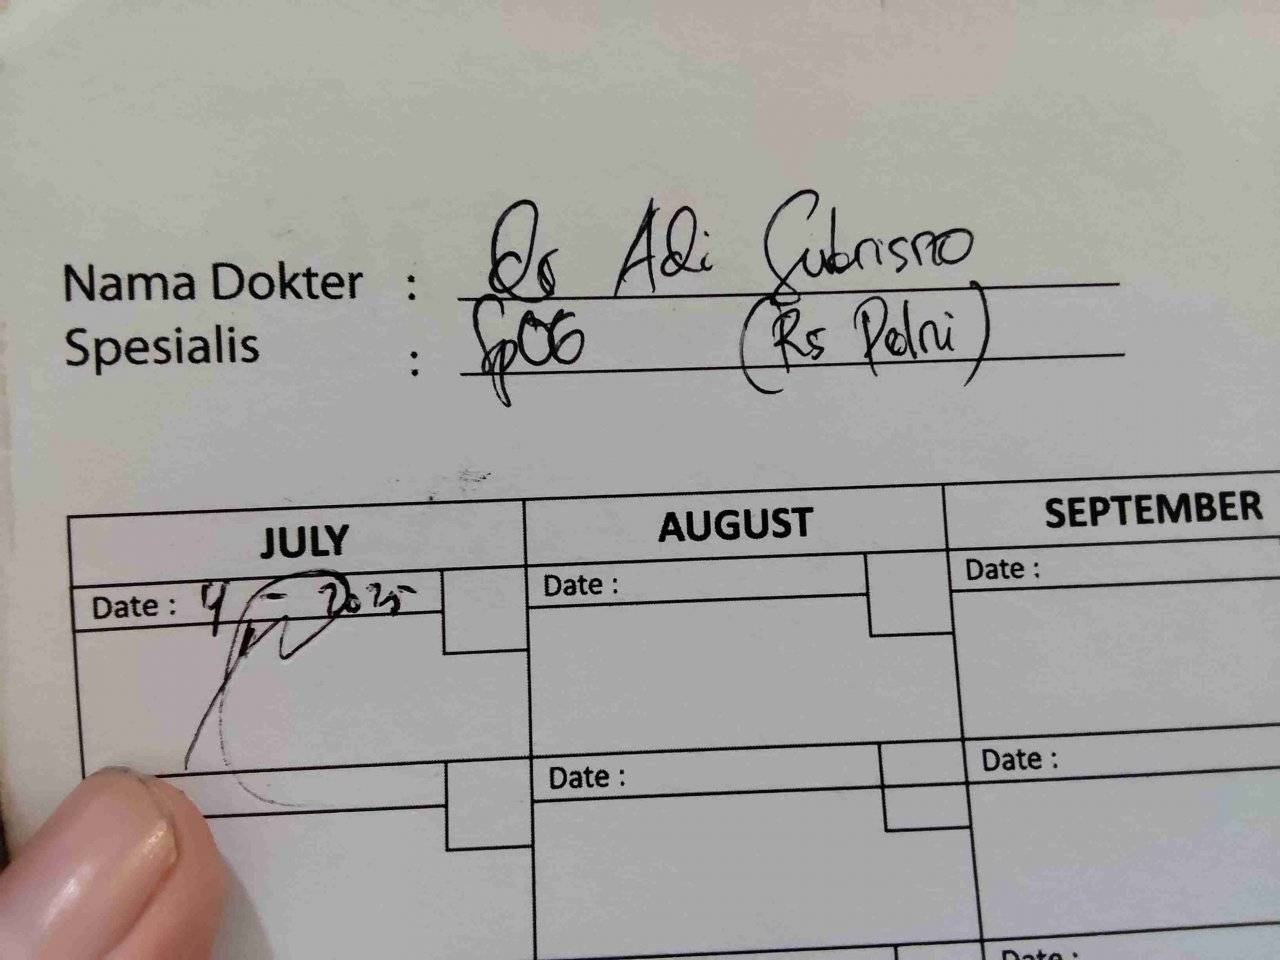 Nama Dokter : Dr Adi Sutrisno
Spesialis : SpOG (Rs Pelni)
JULY AUGUST SEPTEMBER
Date : 4 - 2025 Date : Date :
Date : Date :
Date :